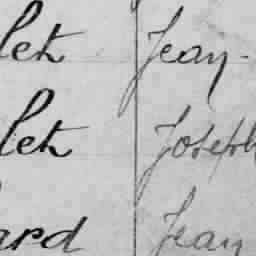 let Jean-
let Joseph
ard Jean